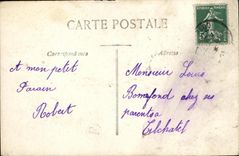 CARTE POSTALE
Correspondance
Adresse
A mon petit
Parain
Robert
Monsieur Louis
Bonnafond chez ses
parents a
Tilchatel